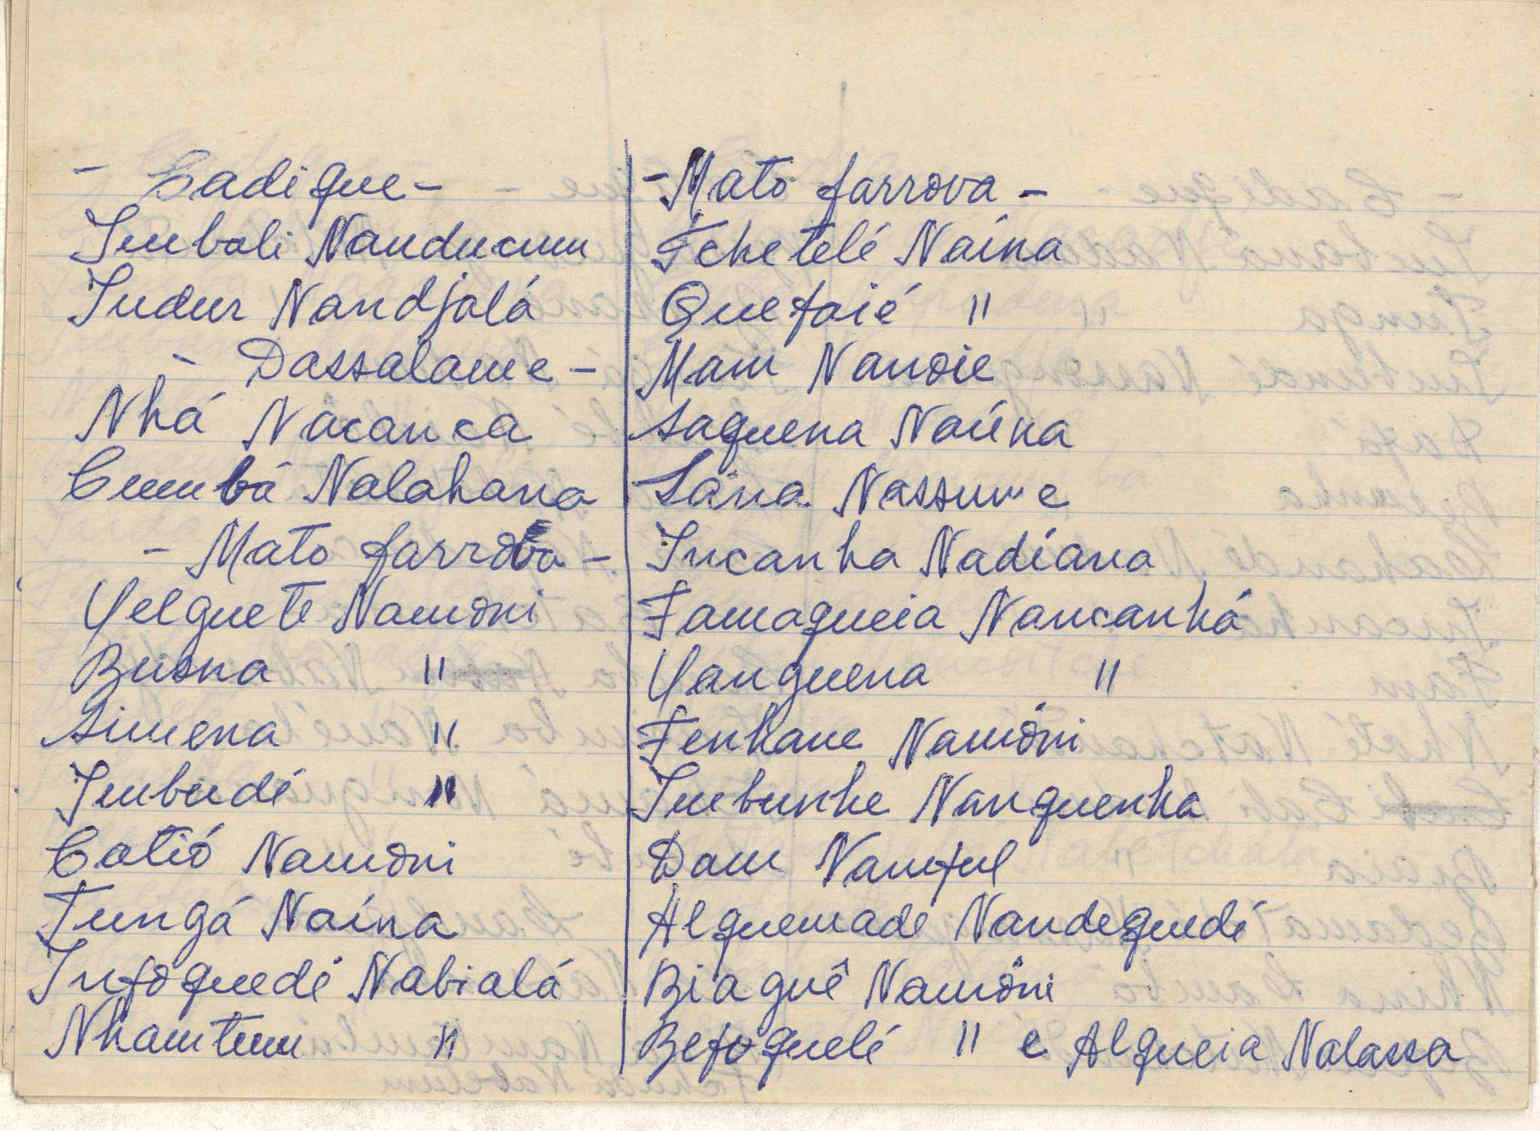 - Cadique -
Imbali Nanducum
Indur Nandjalá
- Dassalame -
Nhá Nacanca
Cumbá Nalahana
- Mato farroba -
Yelguete Namoni
Busna "
Simena "
Imbudé "
Catió Namoni
Tungá Naína
Infoguedé Nabialá
Nhamtum "
- Mato farrova -
Tchetelé Naína
Quefaié "
Mam Nanoie
Saquena Naúna
Sána Nassume
Incanha Nadíana
Famagueia Nancanhá
Yanguena "
Fenhane Namóni
Imbunhe Nanguenha
Dam Namful
Alquemade Nandeguedé
Biaguê Namóni
Befoguelé " e Algueia Nalassa